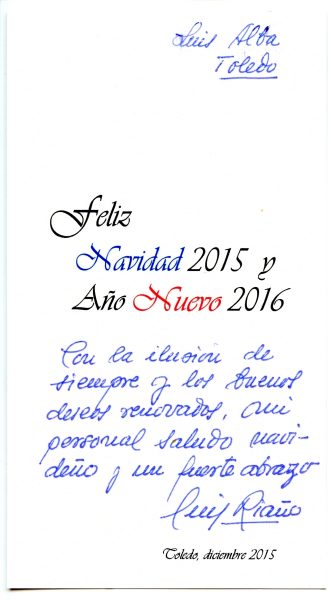 Luis Alba
Toledo
Feliz
Navidad 2015 y
Año Nuevo 2016
Con la ilusión de
siempre y los buenos
deseos renovados, mi
personal saludo navi-
deño y un fuerte abrazo
Luis Riaño
Toledo, diciembre 2015